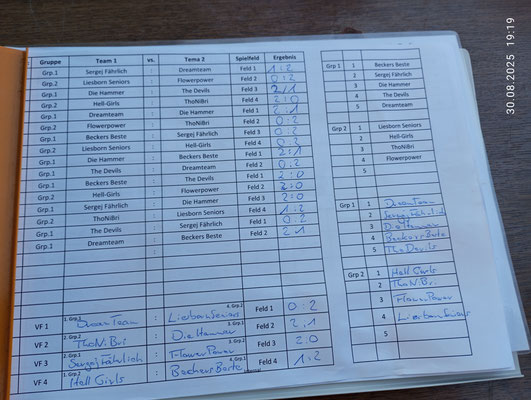 Gruppe Team 1 vs. Tema 2 Spielfeld Ergebnis
Grp.1 Sergej Fährlich : Dreamteam Feld 1 1:2
Grp.2 Liesborn Seniors : Flowerpower Feld 2 0:2
Grp.1 Die Hammer : The Devils Feld 3 2:1
Grp.2 Hell-Girls : ThoNiBri Feld 4 2:0
Grp.1 Dreamteam : Die Hammer Feld 1 2:1
Grp.2 Flowerpower : ThoNiBri Feld 2 0:2
Grp.1 Beckers Beste : Sergej Fährlich Feld 3 0:2
Grp.2 Liesborn Seniors : Hell-Girls Feld 4 0:2
Grp.1 Die Hammer : Beckers Beste Feld 1 2:1
Grp.1 The Devils : Dreamteam Feld 2 0:2
Grp.1 Beckers Beste : The Devils Feld 1 2:0
Grp.2 Hell-Girls : Flowerpower Feld 2 2:0
Grp.1 Sergej Fährlich : Die Hammer Feld 3 2:0
Grp.2 ThoNiBri : Liesborn Seniors Feld 4 1:2
Grp.1 The Devils : Sergej Fährlich Feld 1 0:2
Grp.1 Dreamteam : Beckers Beste Feld 2 2:1
VF 1 1. Grp.1 DreamTeam : 4. Grp.2 Liesborn Seniors Feld 1 0:2
VF 2 2. Grp.2 ThoNiBri : 3. Grp.1 Die Hammer Feld 2 2:1
VF 3 2. Grp.1 Sergej Fährlich : 3. Grp.2 FlowerPower Feld 3 2:0
VF 4 1. Grp.2 Hell Girls : 4. Grp.1 Beckers Beste Feld 4 1:2
Grp 1 1 Beckers Beste
2 Sergej Fährlich
3 Die Hammer
4 The Devils
5 Dreamteam
Grp 2 1 Liesborn Seniors
2 Hell-Girls
3 ThoNiBri
4 Flowerpower
5
Grp 1 1 DreamTeam
2 Sergej Fährlich
3 Die Hammer
4 Beckers Beste
5 The Devils
Grp 2 1 Hell Girls
2 ThoNiBri
3 FlowerPower
4 Liesborn Seniors
5
30.08.2025 19:19